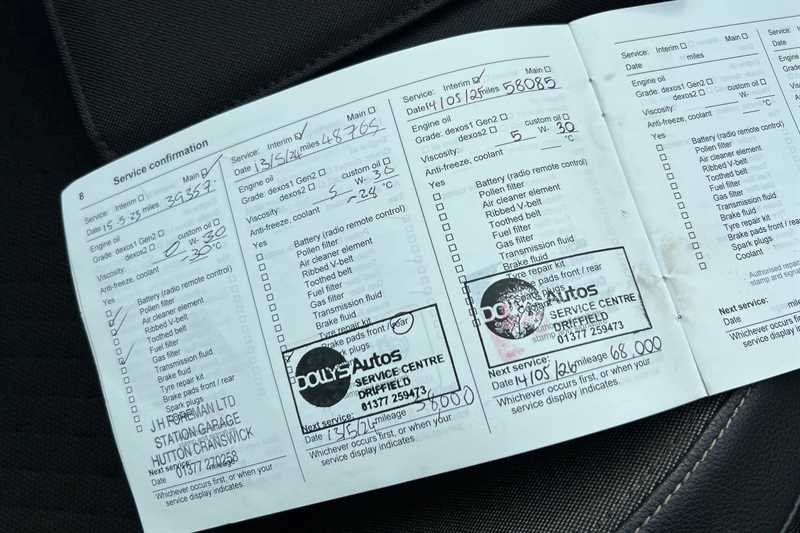 8 Service confirmation
Service: Interim Main
Date 15-5-23 miles 39357
Engine oil
Grade: dexos1 Gen2 custom oil
Viscosity: 0 W- 30
Anti-freeze, coolant -30 °C
Yes
Battery (radio remote control)
Pollen filter
Air cleaner element
Ribbed V-belt
Toothed belt
Fuel filter
Gas filter
Transmission fluid
Brake fluid
Tyre repair kit
Brake pads front / rear
Spark plugs
J H FOREMAN LTD
STATION GARAGE
HUTTON CRANSWICK
01377 270258
Next service:
Date mileage
Whichever occurs first, or when your
service display indicates.
Service: Interim Main
Date 13/5/24 miles 48765
Engine oil
Grade: dexos1 Gen2 custom oil
dexos2
Viscosity: 5 W- 30
Anti-freeze, coolant -28 °C
Yes
Battery (radio remote control)
Pollen filter
Air cleaner element
Ribbed V-belt
Toothed belt
Fuel filter
Gas filter
Transmission fluid
Brake fluid
Tyre repair kit
Brake pads front / rear
Spark plugs
DOLLYS Autos
SERVICE CENTRE
DRIFFIELD
01377 259473
Next service:
Date 13/5/24 mileage 58000
Whichever occurs first, or when your
service display indicates.
Service: Interim Main
Date 14/05/25 miles 58085
Engine oil
Grade: dexos1 Gen2 custom oil
dexos2
Viscosity: 5 W- 30
Anti-freeze, coolant °C
Yes
Battery (radio remote control)
Pollen filter
Air cleaner element
Ribbed V-belt
Toothed belt
Fuel filter
Gas filter
Transmission fluid
Brake fluid
Tyre repair kit
Brake pads front / rear
Spark plugs
DOLLYS Autos
SERVICE CENTRE
DRIFFIELD
01377 259473
Next service:
Date 14/05/26 mileage 68,000
Whichever occurs first, or when your
service display indicates.
Service: Interim Main
Date miles
Engine oil
Grade: dexos1 Gen2 custom oil
dexos2
Viscosity: W-
Anti-freeze, coolant °C
Yes
Battery (radio remote control)
Pollen filter
Air cleaner element
Ribbed V-belt
Toothed belt
Fuel filter
Gas filter
Transmission fluid
Brake fluid
Tyre repair kit
Brake pads front / rear
Spark plugs
Coolant
Authorised repair
stamp and
Next service:
Date mileage
Whichever occurs first, or
service display indicates.